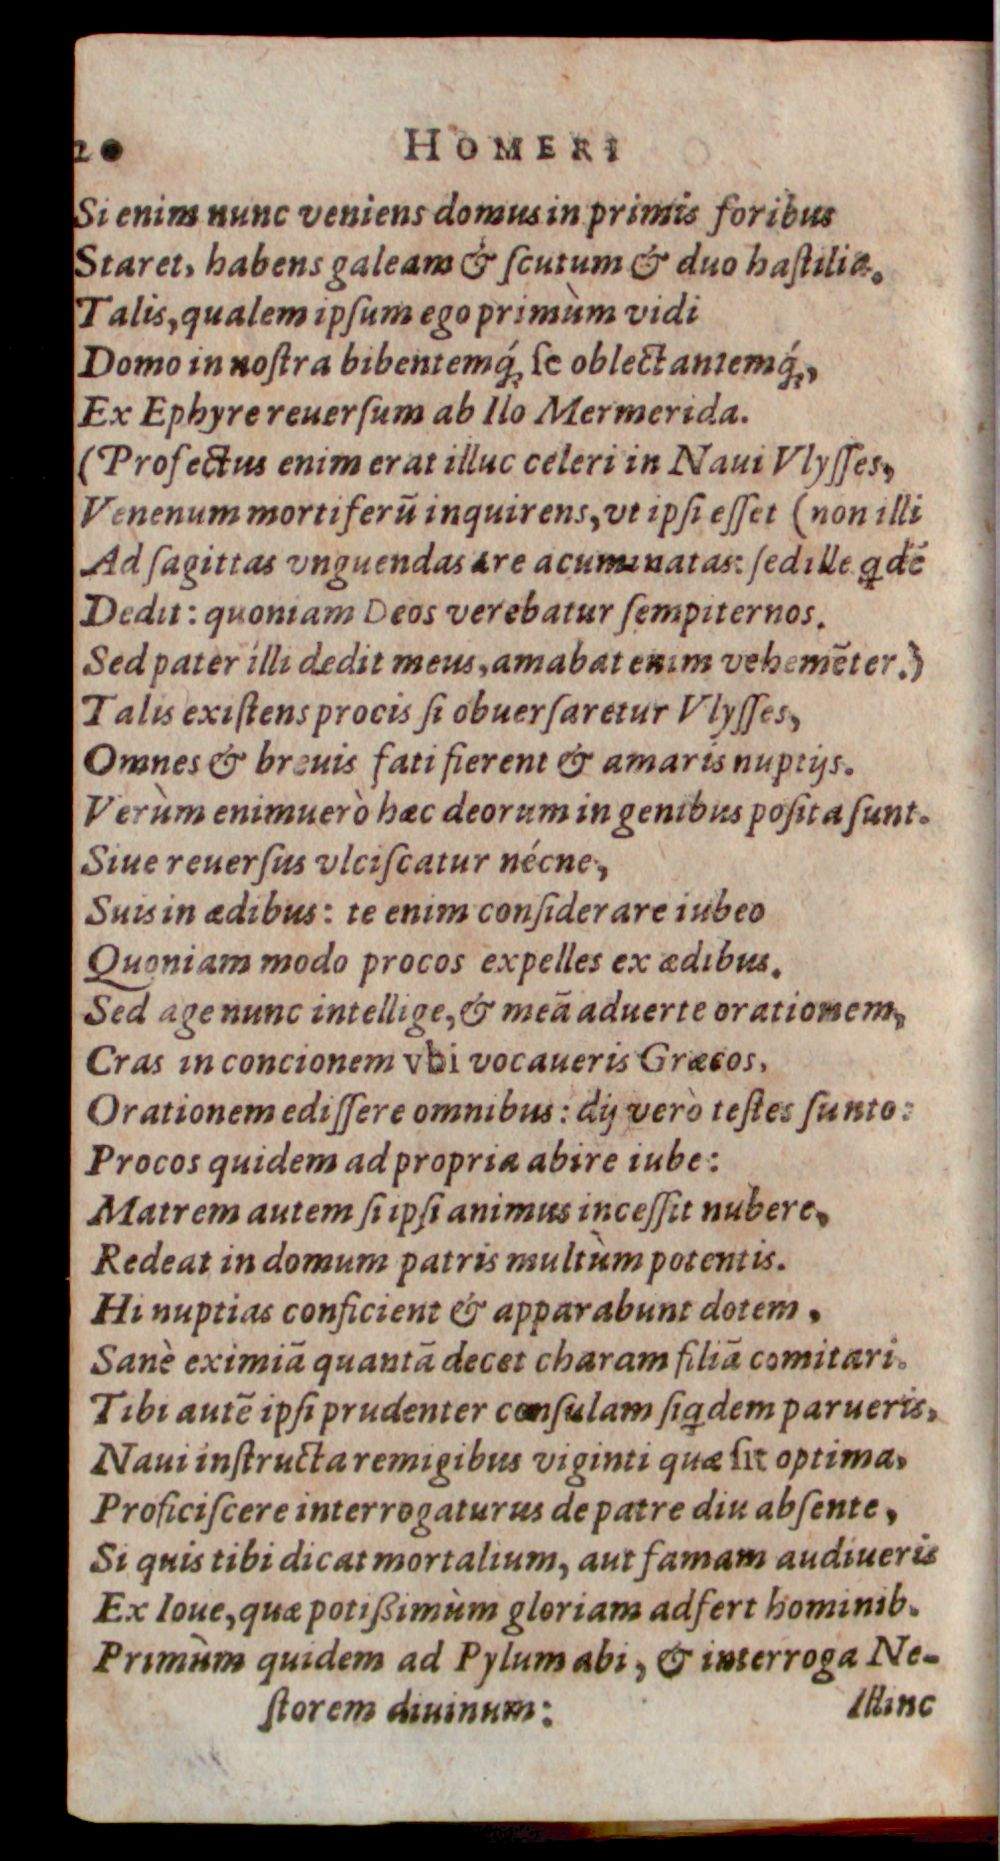 20 HOMERI
Si enim nunc veniens domus in primis foribus
Staret, habens galeam & ſcutum & duo haſtilia.
Talis, qualem ipſum ego primùm vidi
Domo in noſtra bibentemq́; ſe oblectantemq́;,
Ex Ephyre reuerſum ab Ilo Mermerida.
(Profectus enim erat illuc celeri in Naui Vlyſſes,
Venenum mortiferū inquirens, vt ipſi eſſet (non illi
Ad ſagittas vnguendas ære acuminatas: ſed ille qdē
Dedit: quoniam Deos verebatur ſempiternos.
Sed pater illi dedit meus, amabat enim vehemēter.)
Talis exiſtens procis ſi obuerſaretur Vlyſſes,
Omnes & breuis fati fierent & amaris nuptijs.
Verùm enimuerò hæc deorum in genibus poſita ſunt.
Siue reuerſus vlciſcatur nécne,
Suis in ædibus: te enim conſiderare iubeo
Quoniam modo procos expelles ex ædibus.
Sed age nunc intellige, & meā aduerte orationem,
Cras in concionem vbi vocaueris Græcos,
Orationem ediſſere omnibus: dij verò teſtes ſunto:
Procos quidem ad propria abire iube:
Matrem autem ſi ipſi animus inceſſit nubere,
Redeat in domum patris multùm potentis.
Hi nuptias conficient & apparabunt dotem,
Sanè eximiā quantā decet charam filiā comitari.
Tibi autē ipſi prudenter conſulam ſiqdem parueris,
Naui inſtructa remigibus viginti quæ ſit optima,
Proficiſcere interrogaturus de patre diu abſente,
Si quis tibi dicat mortalium, aut famam audiueris
Ex Ioue, quæ potißimùm gloriam adfert hominib.
Primùm quidem ad Pylum abi, & interroga Ne-
ſtorem diuinum: Illinc